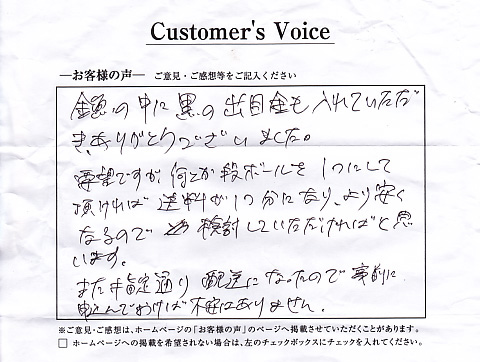 Customer's Voice
―お客様の声― ご意見・ご感想等をご記入ください
金魚の中に黒の出目金も入れていただ
き、ありがとうございました。
要望ですが、何とか段ボールを1つにして
頂ければ送料が1つ分になり、より安く
なるので 検討していただければと思
います。
また 指定通り配送になったので 事前に
申込んでおけば不安はありません。
※ご意見・ご感想は、ホームページの「お客様の声」のページへ掲載させていただくことがあります。
□ ホームページへの掲載を希望されない場合は、左のチェックボックスにチェックを入れてください。